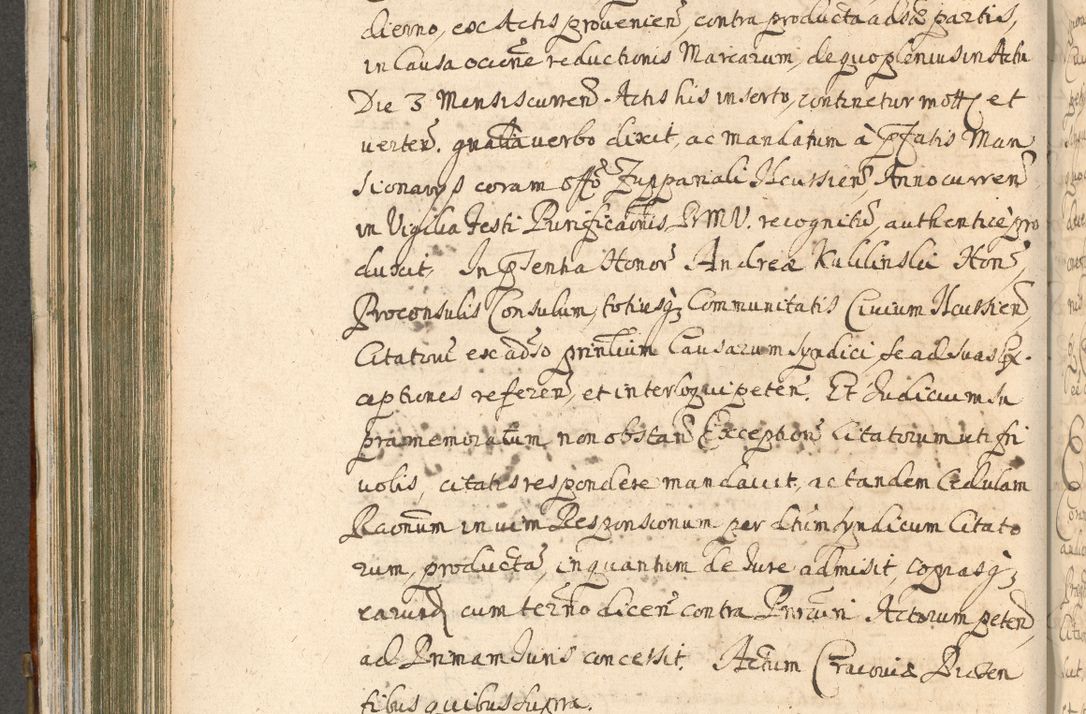 dierno, ex Actis provenien, contra producta adsae partis,
in Causa ocione reductionis Marcarum, de quo plenius in Actu
Die 3 Mensis curren. Actis his inserto, continetur mott et
verten. gnalia verbo dixit, ac mandatum à pfatis Man
sionarijs coram offo Zuppariali Ilcussien, Anno curren
in Vigilia Festi Purificaonis BMV. recognitu, authenticè pro
duxit, In psentia Honor Andreæ Kulilinski Hon,
Proconsulis Consulum, totiusq Communitatis Civium Ilcussien,
Citatoru ex adso printium Causarum Syndici se ad suas Ex-
ceptiones referen, et interloqui peten. Et Judicium In
præmemoratum non obstan Exception Citatorum uti fri
volis, citatis respondere mandavit, ac tandem Cedulam
Raonum in vim Responsionum per dtum Syndicum Citato
rum, producta, inquantum de Jure admisit, copiasq
earund cum terno dicen contra Procuri Actorum peten,
ad Primam Juris concessit, Actum Cracoviæ Præsen
tibus quibus supra.